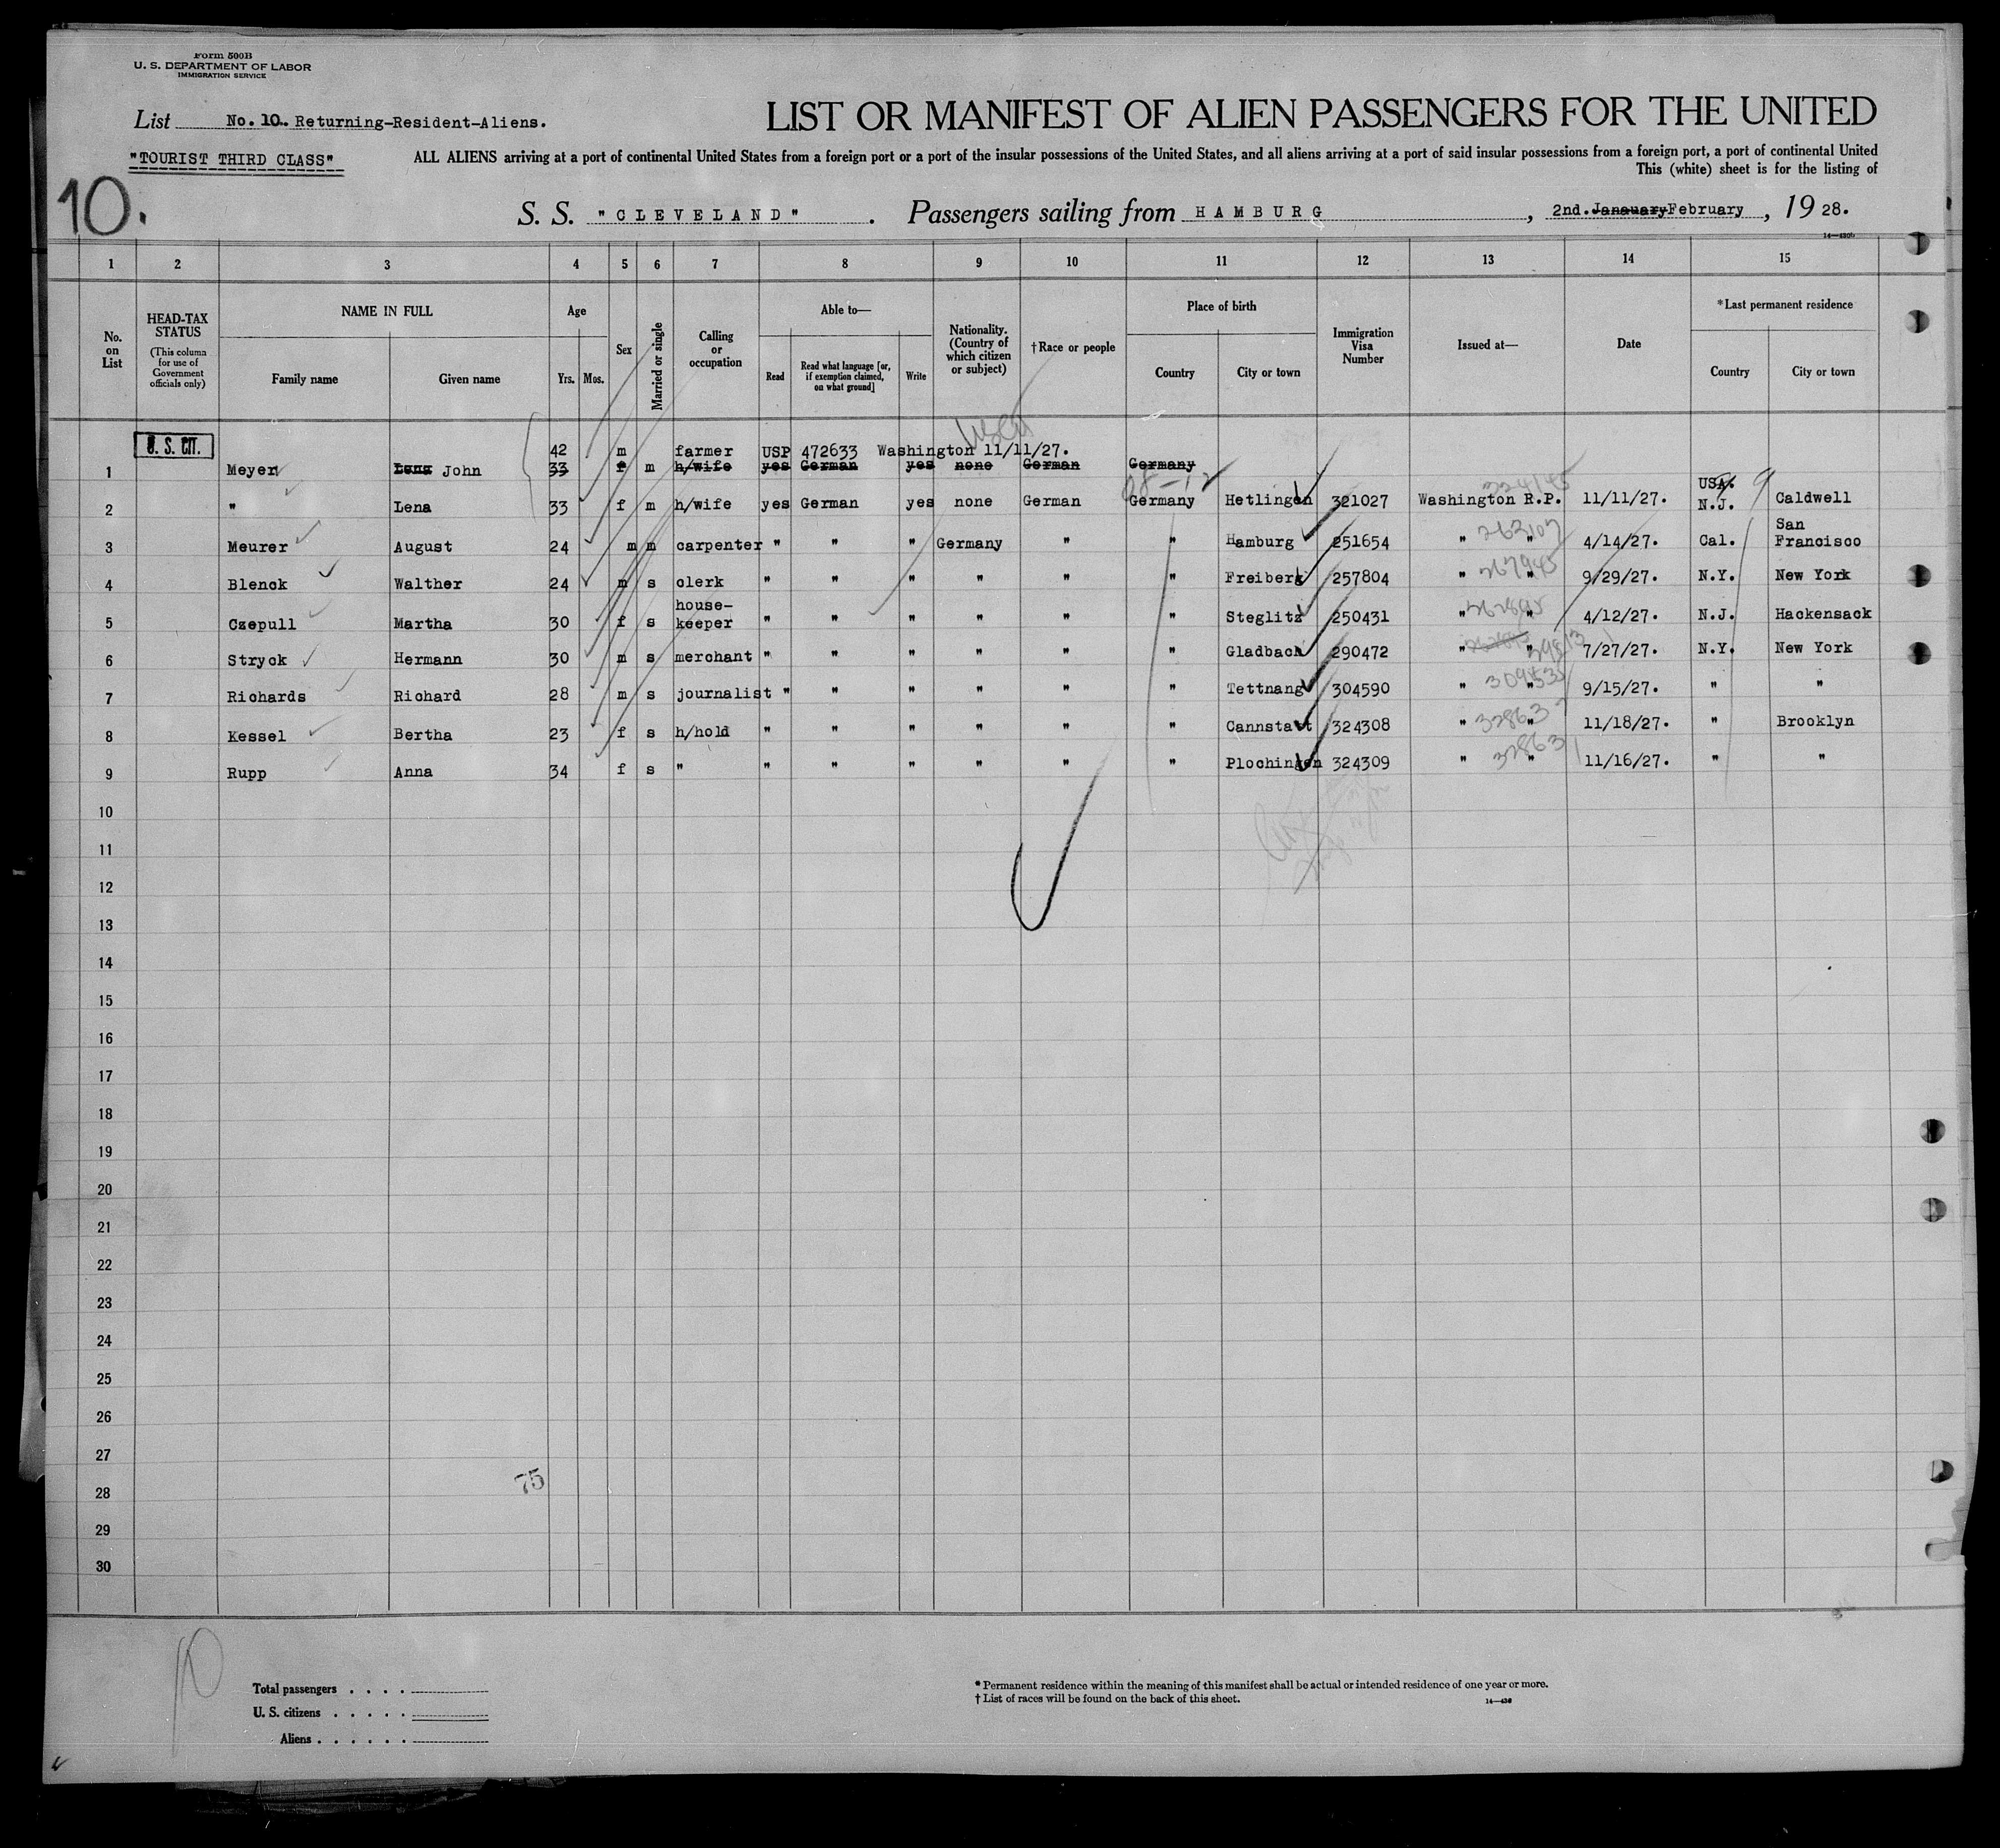 Form 500B
U. S. DEPARTMENT OF LABOR
IMMIGRATION SERVICE
List No. 10. Returning-Resident-Aliens.
LIST OR MANIFEST OF ALIEN PASSENGERS FOR THE UNITED
"TOURIST THIRD CLASS"
ALL ALIENS arriving at a port of continental United States from a foreign port or a port of the insular possessions of the United States, and all aliens arriving at a port of said insular possessions from a foreign port, a port of continental United
This (white) sheet is for the listing of
10.
S. S. "CLEVELAND". Passengers sailing from HAMBURG, 2nd. Janauary February, 1928.
1 2 3 4 5 6 7 8 9 10 11 12 13 14 15
No. on List
HEAD-TAX STATUS (This column for use of Government officials only)
NAME IN FULL
Family name Given name
Age
Yrs. Mos.
Sex
Married or single
Calling or occupation
Able to—
Read
Read what language [or, if exemption claimed, on what ground]
Write
Nationality. (Country of which citizen or subject)
†Race or people
Place of birth
Country City or town
Immigration Visa Number
Issued at—
Date
*Last permanent residence
Country City or town
U. S. CIT.
42 m farmer USP 472633 Washington 11/11/27.
1 Meyer Lena John 33 f m h/wife yes German yes none German Germany
USA.
2 " Lena 33 f m h/wife yes German yes none German Germany Hetlingen 321027 Washington R.P. 11/11/27. N.J. Caldwell
3 Meurer August 24 m m carpenter " " " Germany " " Hamburg 251654 " " 4/14/27. Cal. San Francisco
4 Blenck Walther 24 m s clerk " " " " " " Freiberg 257804 " " 9/29/27. N.Y. New York
5 Czepull Martha 30 f s house-keeper " " " " " " Steglitz 250431 " " 4/12/27. N.J. Hackensack
6 Stryck Hermann 30 m s merchant " " " " " " Gladbach 290472 " " 7/27/27. N.Y. New York
7 Richards Richard 28 m s journalist " " " " " " Tettnang 304590 " " 9/15/27. " "
8 Kessel Bertha 23 f s h/hold " " " " " " Cannstatt 324308 " " 11/18/27. " Brooklyn
9 Rupp Anna 34 f s " " " " " " " Plochingen 324309 " " 11/16/27. " "
10
11
12
13
14
15
16
17
18
19
20
21
22
23
24
25
26
27
28
29
30
75
10
Total passengers . . . .
U. S. citizens . . . . .
Aliens . . . . . .
* Permanent residence within the meaning of this manifest shall be actual or intended residence of one year or more.
† List of races will be found on the back of this sheet.